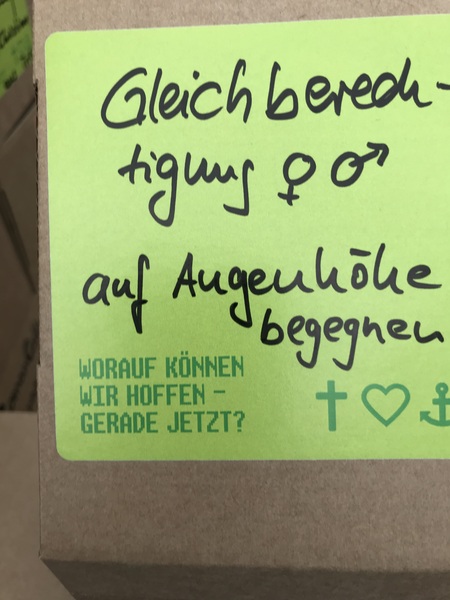 Gleichberech-
tigung ♀ ♂
auf Augenhöhe
begegnen
WORAUF KÖNNEN
WIR HOFFEN -
GERADE JETZT?